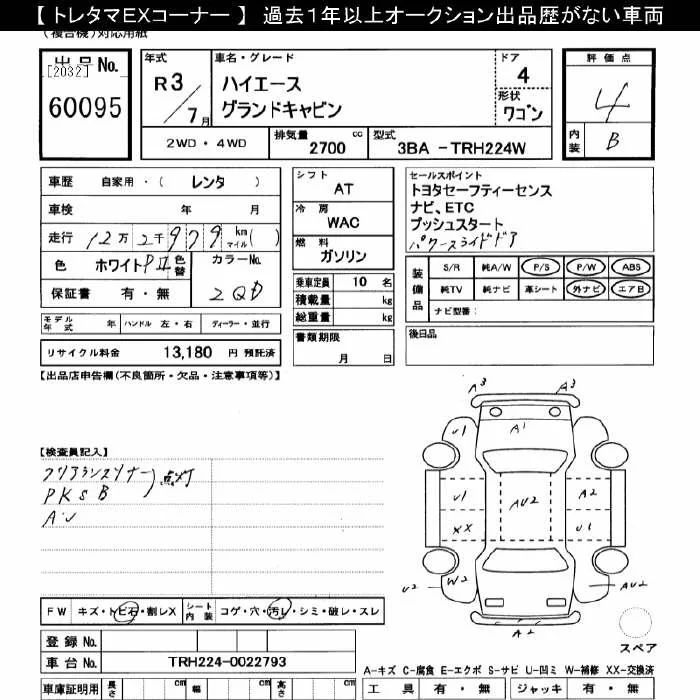 【 トレタマEXコーナー 】 過去１年以上オークション出品歴がない車両
(複合機)対応用紙
出品No.
[2032]
60095
年式
R3/7月
車名・グレード
ハイエース
グランドキャビン
ドア
4
形状
ワゴン
評価点
4
内装 B
2WD・4WD
排気量 2700 cc
型式 3BA -TRH224W
車歴 自家用・( レンタ )
車検 年 月
走行 12万2千979 km マイル( )
色 ホワイトPⅡ 色替
カラーNo.
2QD
保証書 有・無
シフト
AT
冷房
WAC
燃料
ガソリン
乗車定員 10 名
積載量 kg
総重量 kg
書類期限
月 日
セールスポイント
トヨタセーフティーセンス
ナビ、ETC
プッシュスタート
パワースライドドア
装備品
S/R 純A/W P/S P/W ABS
純TV 純ナビ 革シート 外ナビ エアB
ナビ型番:
後日品
モデル年式 年 ハンドル 左・右 ディーラー・並行
リサイクル料金 13,180 円 預託済
【出品店申告欄(不良箇所・欠品・注意事項等)】
【検査員記入】
クリアランスソナー 点灯
PKSB
AU
A3 A3
U1 A1
U1 AU2 A2
XX U1
U2 W2 AU2
A2
スペア
FW キズ・トビ石・割レX シート内装 コゲ・穴・汚レ・シミ・破レ・スレ
登録No.
車台No. TRH224-0022793
車庫証明用 長さ cm 幅 cm 高さ cm
A-キズ C-腐食 E-エクボ S-サビ U-凹ミ W-補修 XX-交換済
工具 有・無 ジャッキ 有・無